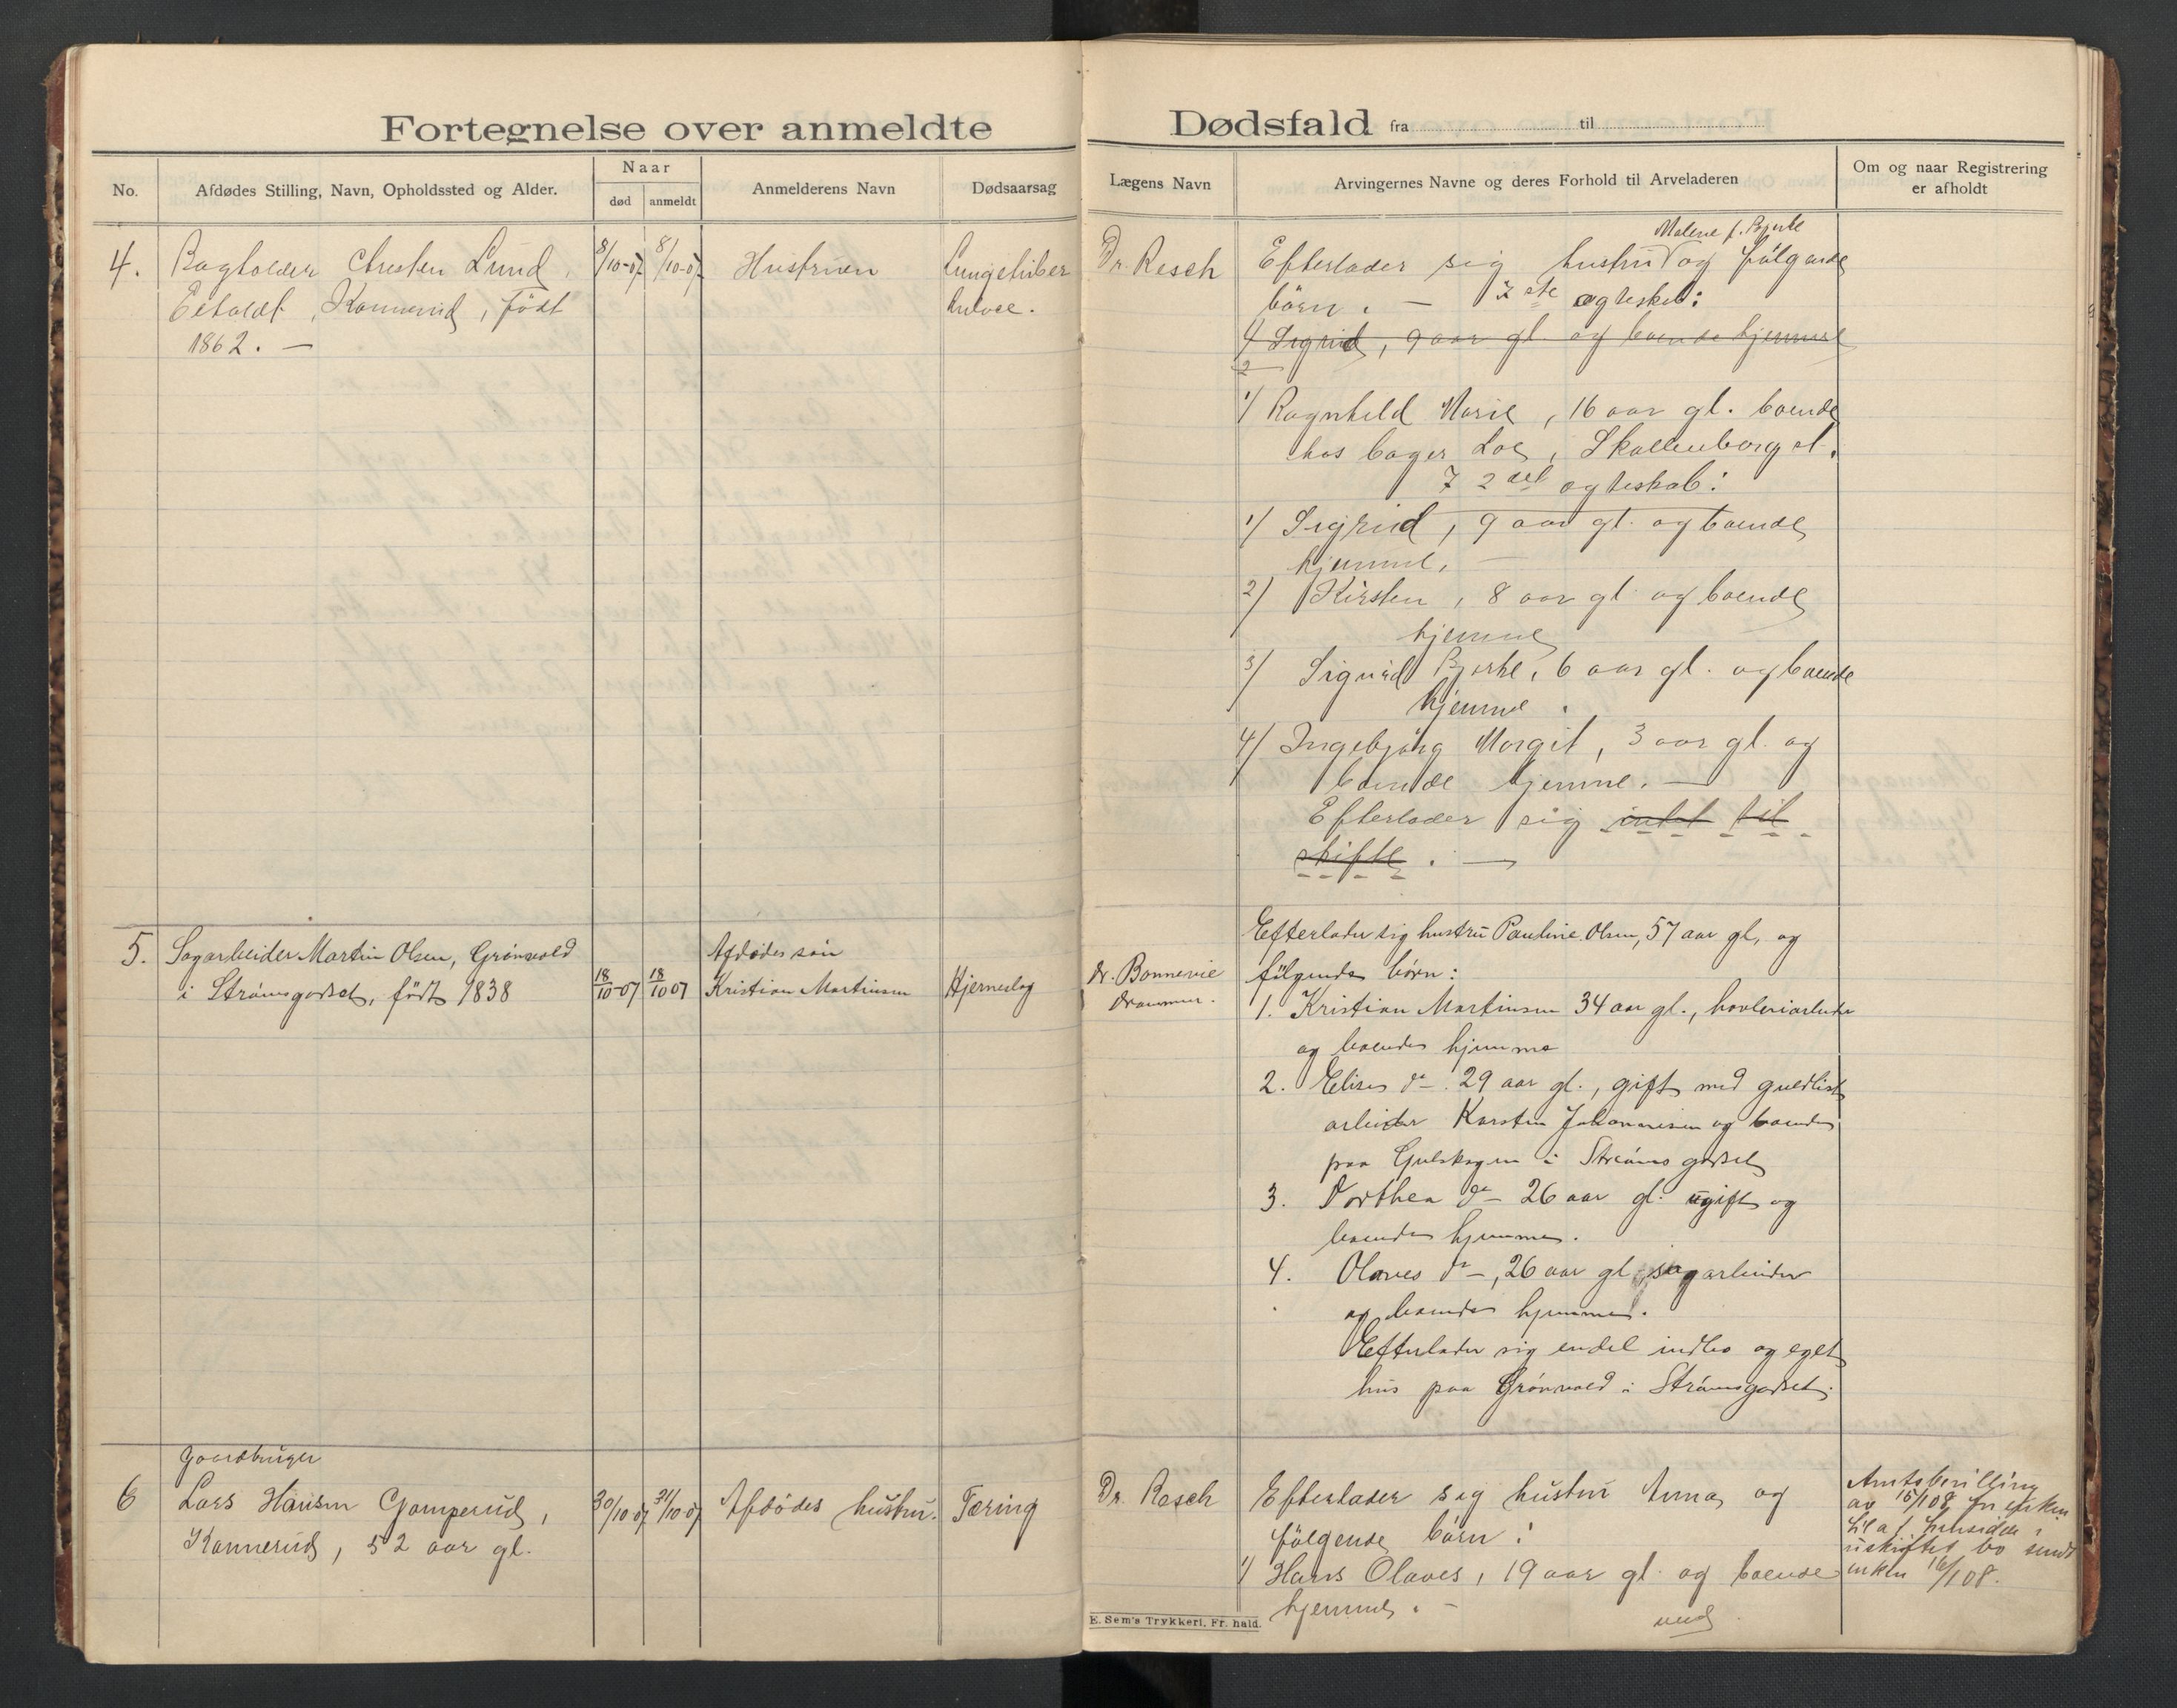 Fortegnelse over anmeldte Dødsfald fra til
No.
Afdødes Stilling, Navn, Opholdssted og Alder.
Naar
død
anmeldt
Anmelderens Navn
Dødsaarsag
Lægens Navn
Arvingernes Navne og deres Forhold til Arveladeren
Om og naar Registrering
er afholdt
4.
Bogholder Chresten Lund,
Konnerud, født
1862. —
8/10-07
8/10-07
Hustruen
Lungetuber
kulose.
Dr. Resch
Malene f. Bjerke
Efterlader sig hustru og følgende
børn. — I 1ste ægteskab:
1) Sigrid, 9 aar gl. og boende hjemme
2
1) Ragnhild Marie, 16 aar gl. boende
hos bager Loe, Skollenborg st.
I 2det ægteskab:
1) Sigrid, 9 aar gl. og boende
hjemme. —
2) Kirsten, 8 aar gl. og boende
hjemme
3) Sigurd Bjerke, 6 aar gl. og boende
hjemme.
4) Ingebjørg Margit, 3 aar gl. og
boende hjemme. —
Efterlader sig intet til
skifte. —
5.
Sagarbeider Martin Olsen, Grønvold
i Strømsgodset, født 1838
18/10-07
18/10 07
Afdødes søn
Kristian Martinsen
Hjerneslag
Dr. Bonnevie
Drammen.
Efterlader sig hustru Pauline Olsen, 57 aar gl, og
følgende børn:
1. Kristian Martinsen 34 aar gl., høvleriarbeider
og boende hjemme
2. Elise do — 29 aar gl., gift med guldliste
arbeider Karsten Johannesen og boende
paa Gulskogen i Strømsgodset
3. Dorthea do — 26 aar gl. ugift og
boende hjemme.
4. Olaves do —, 26 aar gl. sagarbeider
og boende hjemme.
Efterlader sig endel indbo og eget
hus paa Grønvold i Strømsgodset.
6
Gaardbruger
Lars Hansen Gomperud,
Konnerud, 52 aar gl.
30/10 07
31/10-07
Afdødes hustru.
Tæring
Dr. Resch
Efterlader sig hustru Anna og
følgende børn:
1) Hans Olaves, 19 aar gl. og boende
hjemme. —
vend
Amtsbevilling
av 15/1 08 for enken
til at hensidde i
uskiftet bo sendt
enken 16/1 08.
E. Sem's Trykkeri, Fr. hald.